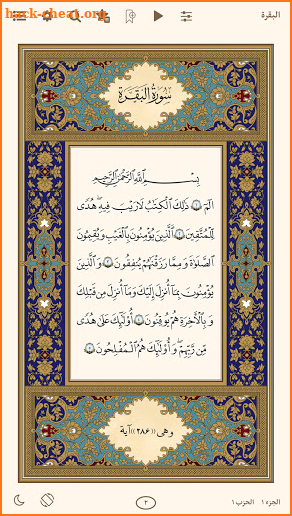 hack-cheat.org
البقرة
سُورَةُ الْبَقَرَةِ
بِسْمِ اللَّهِ الرَّحْمَٰنِ الرَّحِيمِ
الٓمٓ ۝١ ذَٰلِكَ الْكِتَٰبُ لَا رَيْبَ فِيهِ هُدًى
لِلْمُتَّقِينَ ۝٢ الَّذِينَ يُؤْمِنُونَ بِالْغَيْبِ وَيُقِيمُونَ
الصَّلَوٰةَ وَمِمَّا رَزَقْنَٰهُمْ يُنْفِقُونَ ۝٣ وَالَّذِينَ
يُؤْمِنُونَ بِمَا أُنْزِلَ إِلَيْكَ وَمَا أُنْزِلَ مِنْ قَبْلِكَ
وَبِالْآخِرَةِ هُمْ يُوقِنُونَ ۝٤ أُولَٰئِكَ عَلَىٰ هُدًى
مِنْ رَبِّهِمْ وَأُولَٰئِكَ هُمُ الْمُفْلِحُونَ ۝٥
وهى ((٢٨٦)) آية
الجزء ١ الحزب ١
٢